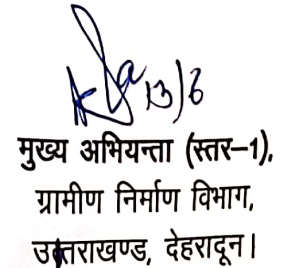 13/6
मुख्य अभियन्ता (स्तर–1),
ग्रामीण निर्माण विभाग,
उत्तराखण्ड, देहरादून।